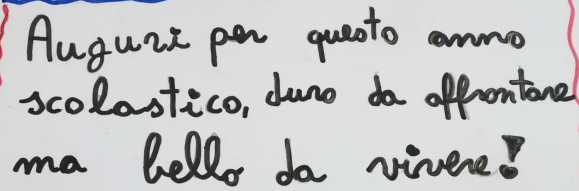 Auguri per questo anno
scolastico, duro da affrontare
ma bello da vivere!